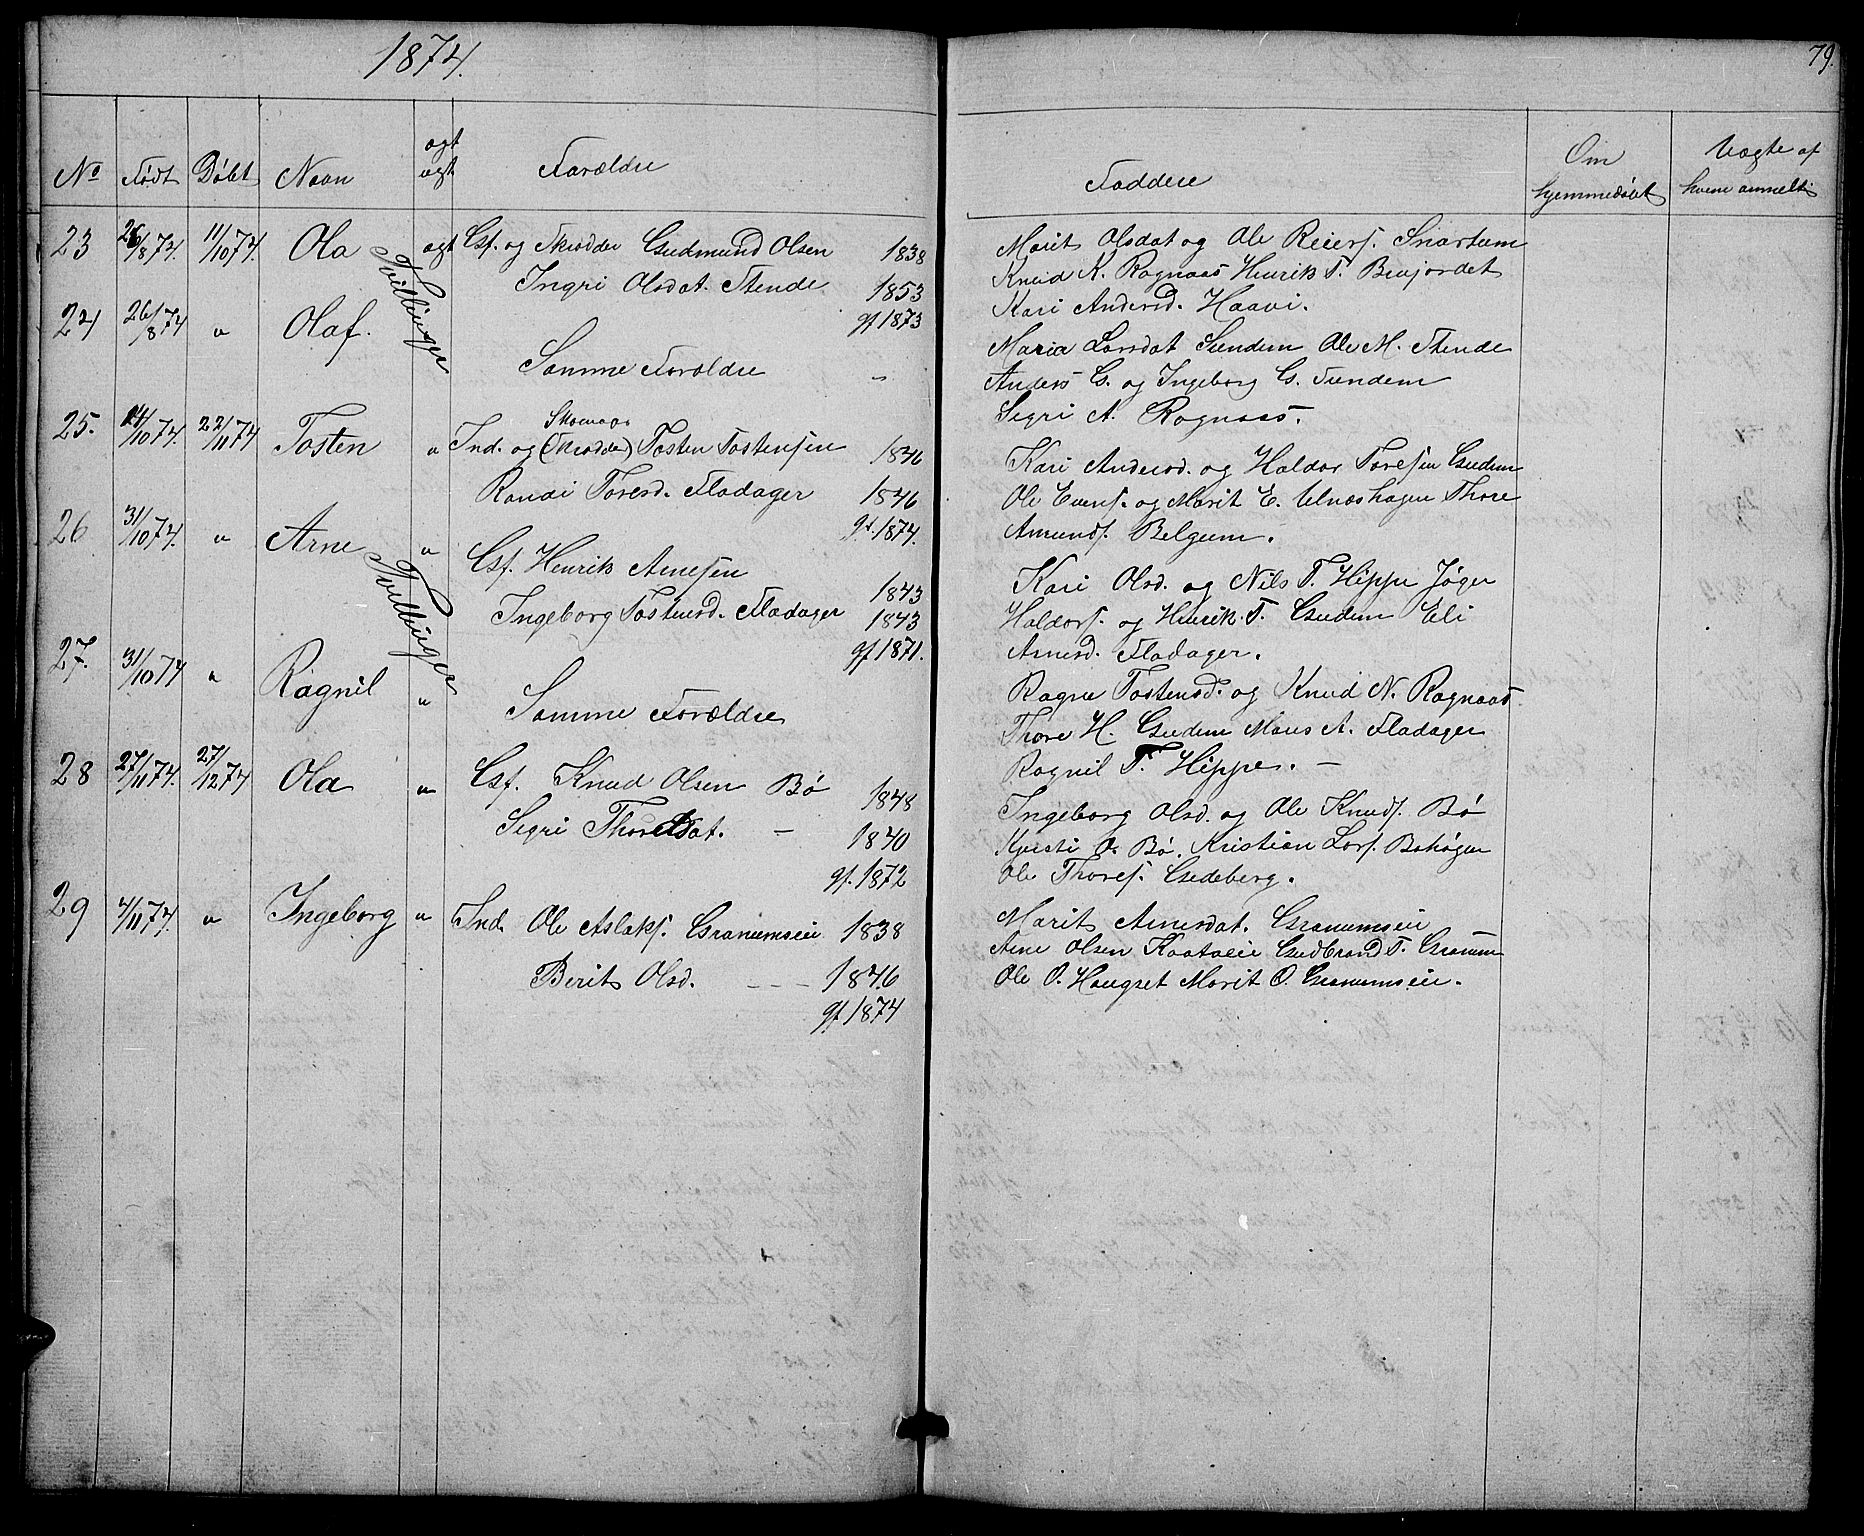 1874.
79.
No Født Døbt Navn ægt uægt Forældre
Faddere Om hjemmedøbt Uægte af hvem anmeldt
23 26/8 74. 11/10 74. Ola ægt Gsf. og Skrædder Gudmund Olsen 1838
Ingri Olsdat. Stende 1853
gf 1873
Tvillinger
24 26/8 74 " Olaf.
Samme Forældre "
25. 22/11 74 Tosten " Skomager
Ind. og (Skrædder) Tosten Tostensen 1846
Randi Toresd. Fladager 1846
gf. 1874.
26 31/10 74. " Arne " Gsf. Henrik Arnesen 1843
Ingeborg Tostensd. Fladager 1843
gf 1871.
Tvillinger
27. 31/10 74 " Ragnil " Samme Forældre
28 27/11 74. 27/12 74 Ola " Gsf. Knud Olsen Bø 1848
Sigri Thoresdat. — 1840
gf. 1872
29 4/11 74. " Ingeborg " Ind. Ole Aslaks. Granumseie 1838
Berit Olsd. - - - 1846
gf 1874
Marit Olsdat og Ole Reiers. Snartum
Knud K. Rognaas Henrik T. Brujordet
Kari Andersd. Haavi.
Maria Larsdat Sundem Ole M. Stende
Anders G. og Ingeborg G. Sundem
Sigri A. Rognaas.
Kari Andersd. og Haldor Toresen Gudem
Ole Evens. og Marit E. Ulnæshagen Thore
Amunds. Belgum.
Kari Olsd. og Nils T. Hippe Jøger
Haldors. og Henrik. T. Gudem Eli
Arnesd. Fladager.
Ragne Tostensd. og Knud N. Rognaas
Thore H. Gudem Maus A. Fladager
Ragnil T. Hippe. —
Ingeborg Olsd. og Ole Knuds. Bø
Kjersti O. Bø. Kristian Lars. Bøhagen
Ole Thores. Gudeberg.
Marit Arnesdat. Granumseie
Arne Olsen Kaataeie Gudbrand T. Granum
Ole O. Haugset Marit O. Granumseie.